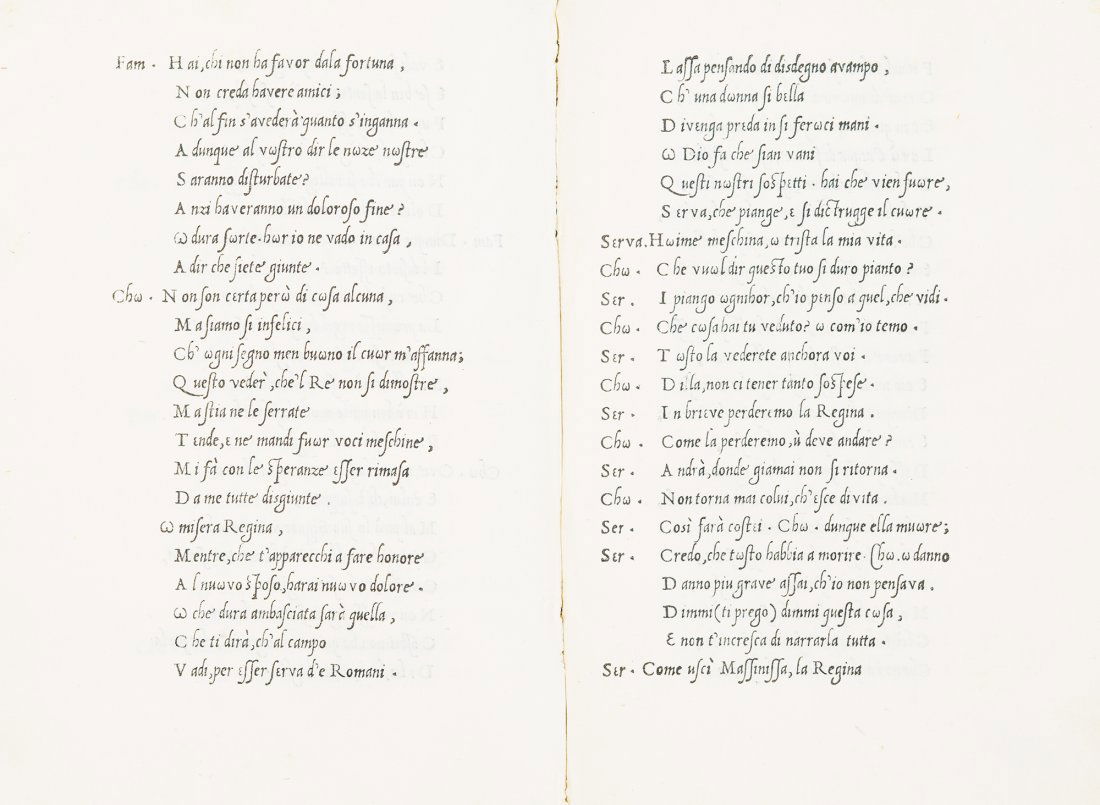 Fam. Hai, chi non ha favor dala fortuna,
Non creda havere amici;
Ch'al fin s'avederà quanto s'inganna.
Adunque al vωstro dir le nωze nωstre
Saranno diſturbate?
Anzi haveranno un doloroso fine?
ω dura ſωrte. hωr io ne vado in caſa,
A dir che ſiete giunte.
Chω. Non son certa perὼ di cωſa alcuna,
Ma ſiamo ſi infelici,
Ch' ωgni ſegno men buωno il cuωr m'affanna;
Queſto veder, che'l Re non ſi dimoſtre,
Ma ſtia ne le ſerrate
Tende, ε ne mandi fuωr voci meſchine,
Mi fà con le ſperanze eſſer rimaſa
Da me tutte diſgiunte.
ω miſera Regina,
Mentre, che t'apparecchi a fare honore
Al nuωvo ſpoſo, harai nuωvo dolore.
ω che dura ambaſciata ſarà quella,
Che ti dirà, ch'al campo
Vadi, per εſſer ſεrva d'e Romani.
Laſſa penſando di diſdegno avampo,
Ch' una dωnna ſi bεlla
Divenga prεda in ſi ferωci mani.
ω Dio fa che ſian vani
Queſti nωſtri ſoſpεtti. hai che vien fuωre,
Sεrva, che piange, ε ſi diſtrugge il cuωre.
Sεrva. Hωime meſchina, ω triſta la mia vita.
Chω. Che vuωl dir queſto tuo ſi duro pianto?
Sεr. I piango ωgnihor, ch'io pεnſo a quel, che vidi.
Chω. Che cωſa hai tu veduto? ω com'io temo.
Sεr. Tωſto la vederete anchora voi.
Chω. Dilla, non ci tener tanto ſoſpeſe.
Sεr. In briεve perderεmo la Regina.
Chω. Come la perderεmo, ù deve andare?
Sεr. Andrà, donde giamai non ſi ritorna.
Chω. Non torna mai colui, ch'εſce di vita.
Sεr. Coſì farà coſtεi. Chω. dunque ella muωre;
Sεr. Credo, che tωſto habbia a morire. Chω. ω danno
Danno piu grave aſſai, ch'io non penſava.
Dimmi (ti prego) dimmi queſta cωſa,
ε non t'increſca di narrarla tutta.
Sεr. Come uſcì Maſſiniſſa, la Regina